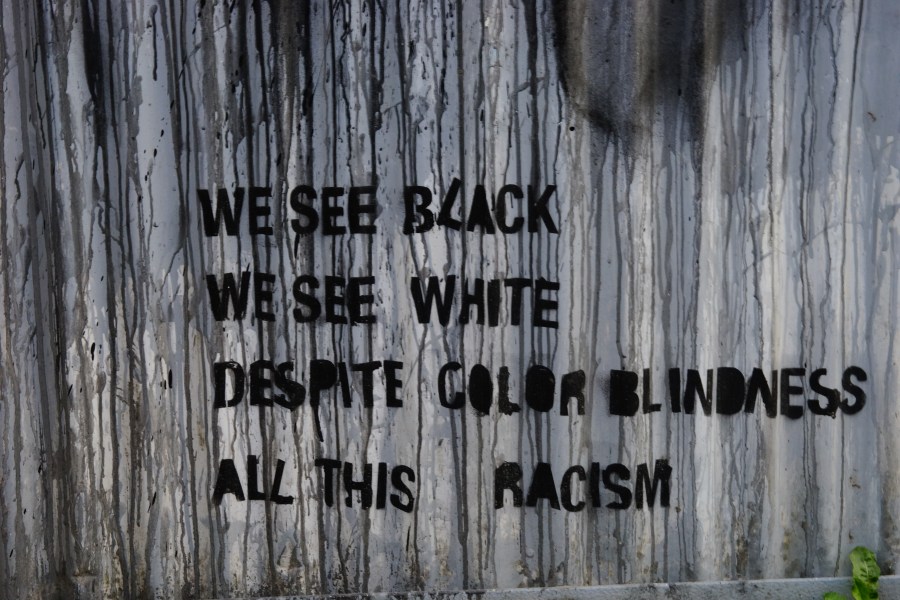 WE SEE BLACK
WE SEE WHITE
DESPITE COLOR BLINDNESS
ALL THIS RACISM